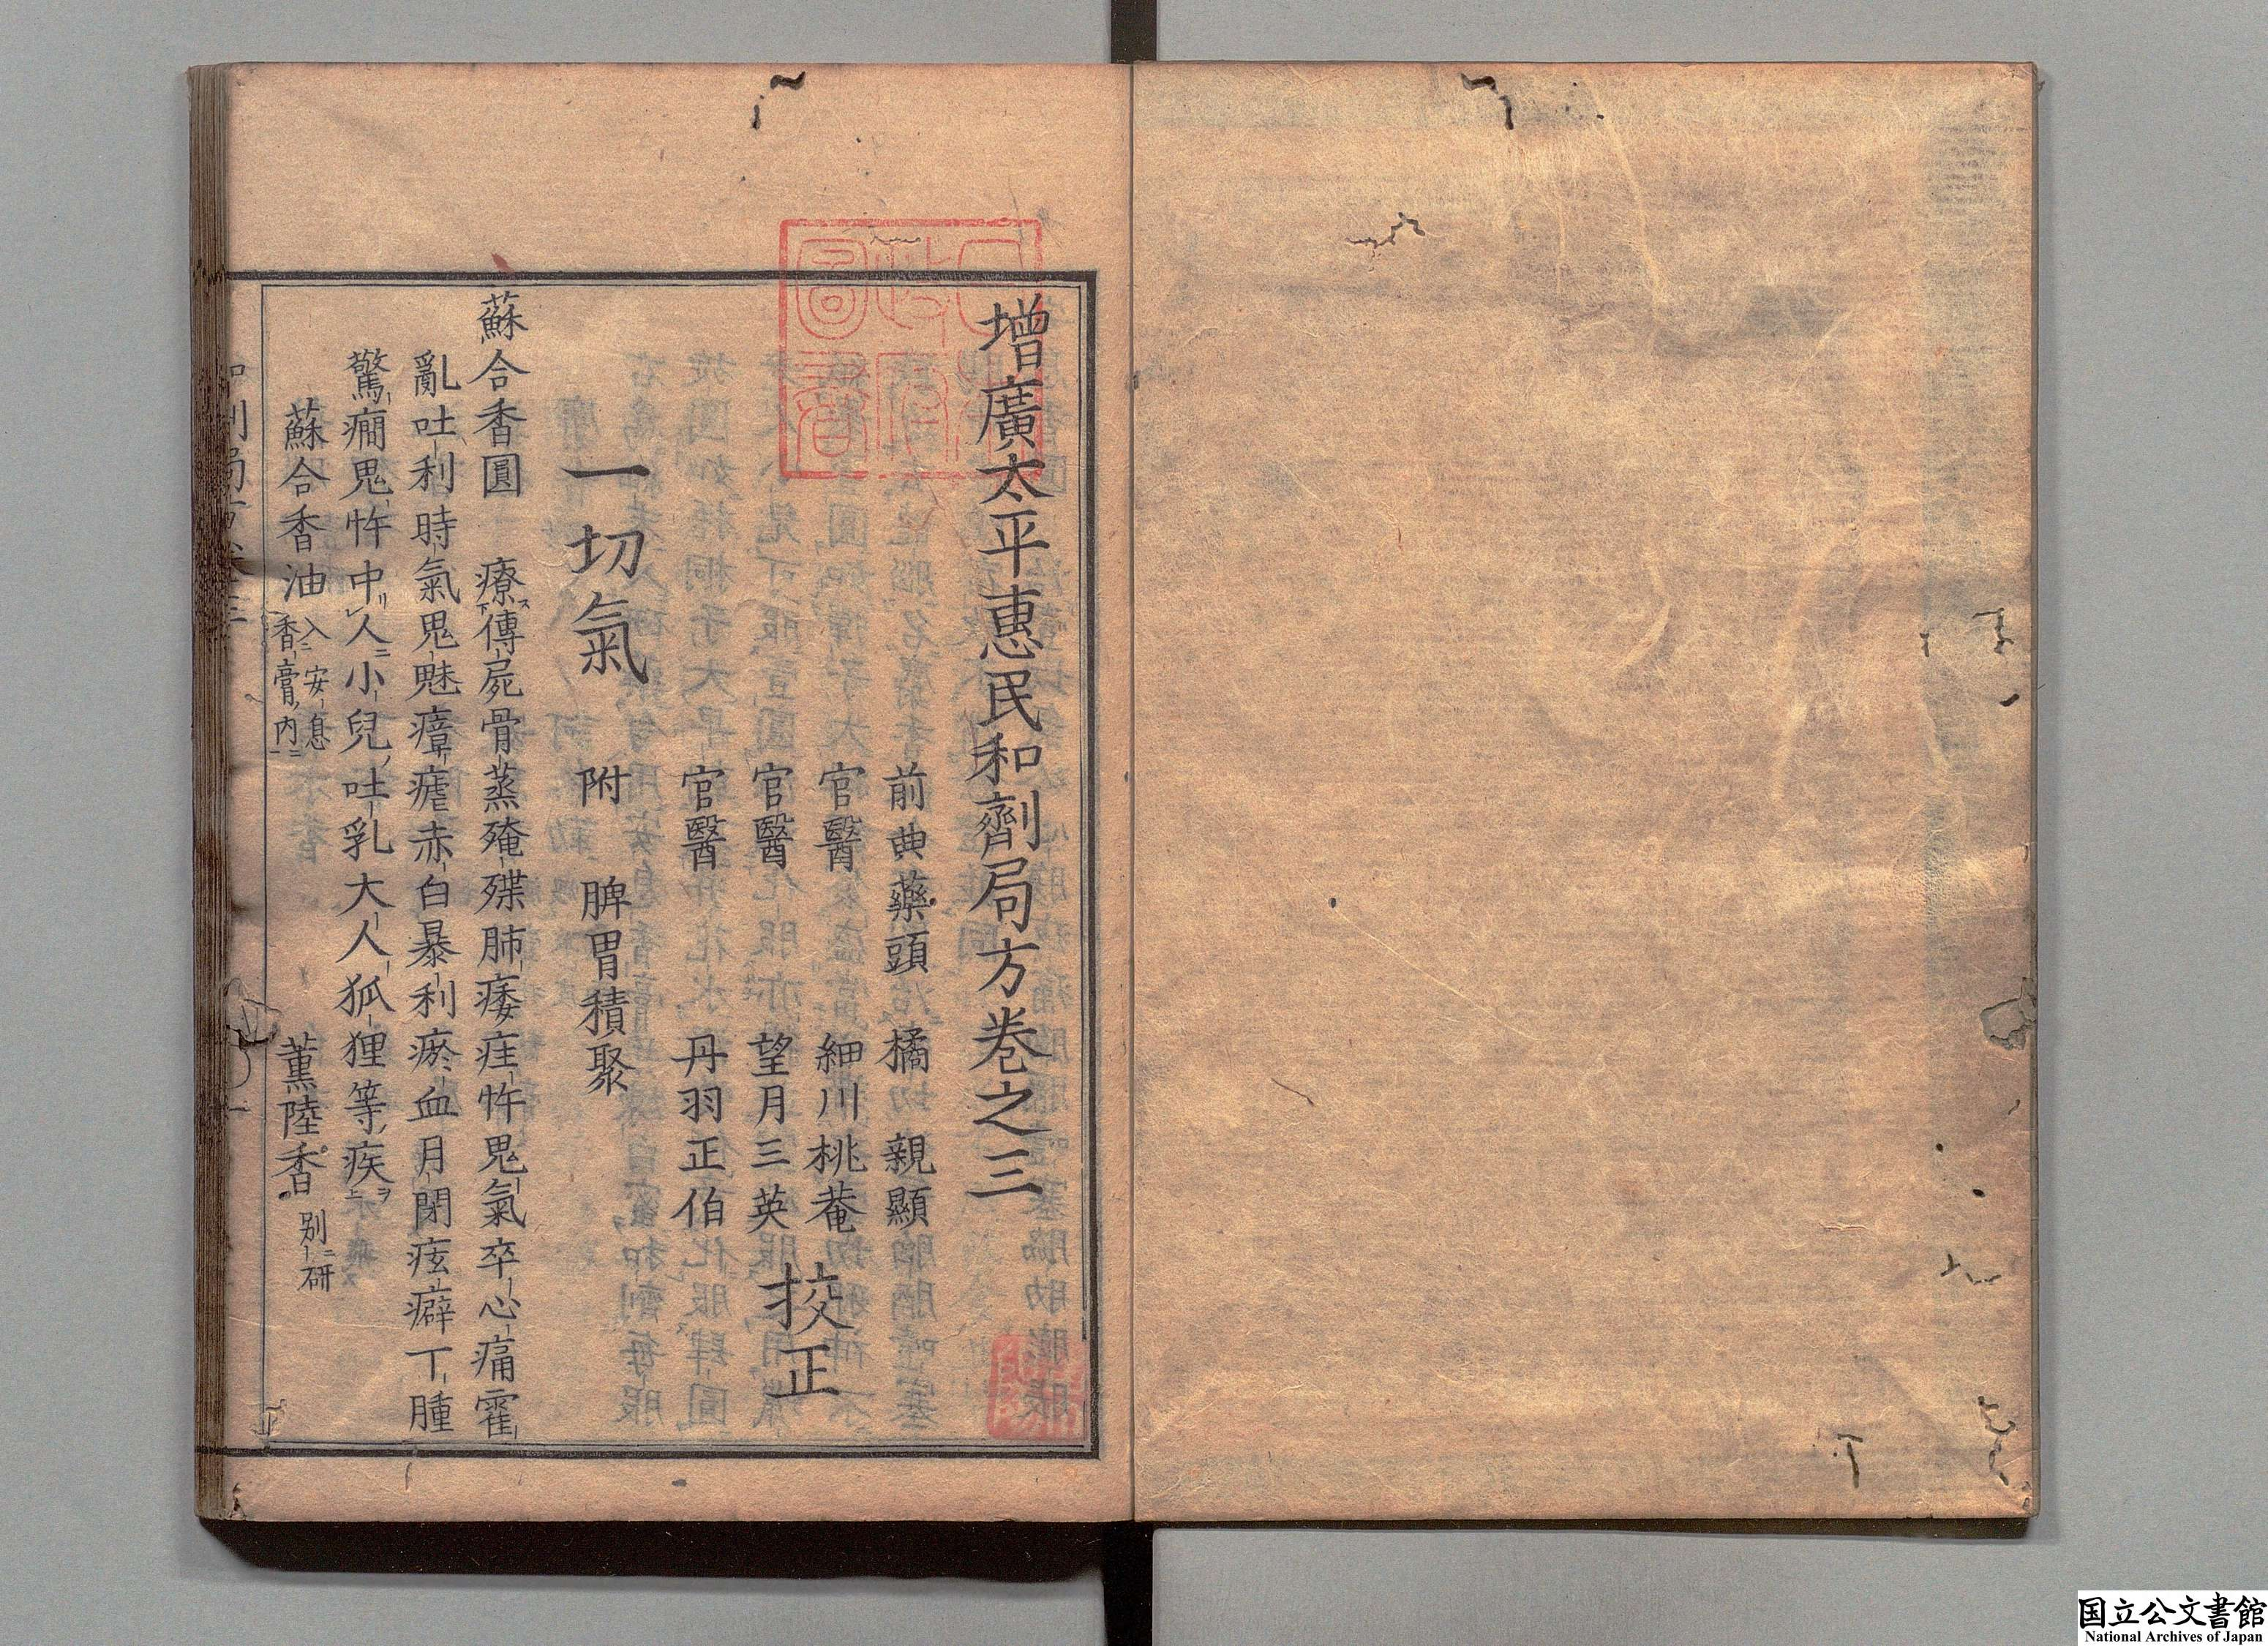 增廣太平惠民和劑局方卷之三
前典藥頭 橘親顯
官醫 細川桃菴
官醫 望月三英
官醫 丹羽正伯
挍正
一切氣 附 脾胃積聚
蘇合香圓 療傳屍骨蒸殗殜肺痿疰忤鬼氣卒心痛霍
亂吐利時氣鬼魅瘴瘧赤白暴利瘀血月閉痃癖丁腫
驚癇鬼忤中人小兒吐乳大人狐狸等疾
蘇合香油 入安息
香膏内
薰陸香 别研
国立公文書館
National Archives of Japan